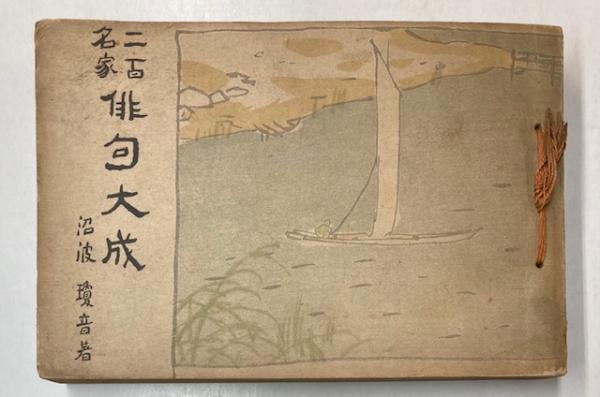 二百
名家
俳句大成
沼波瓊音著